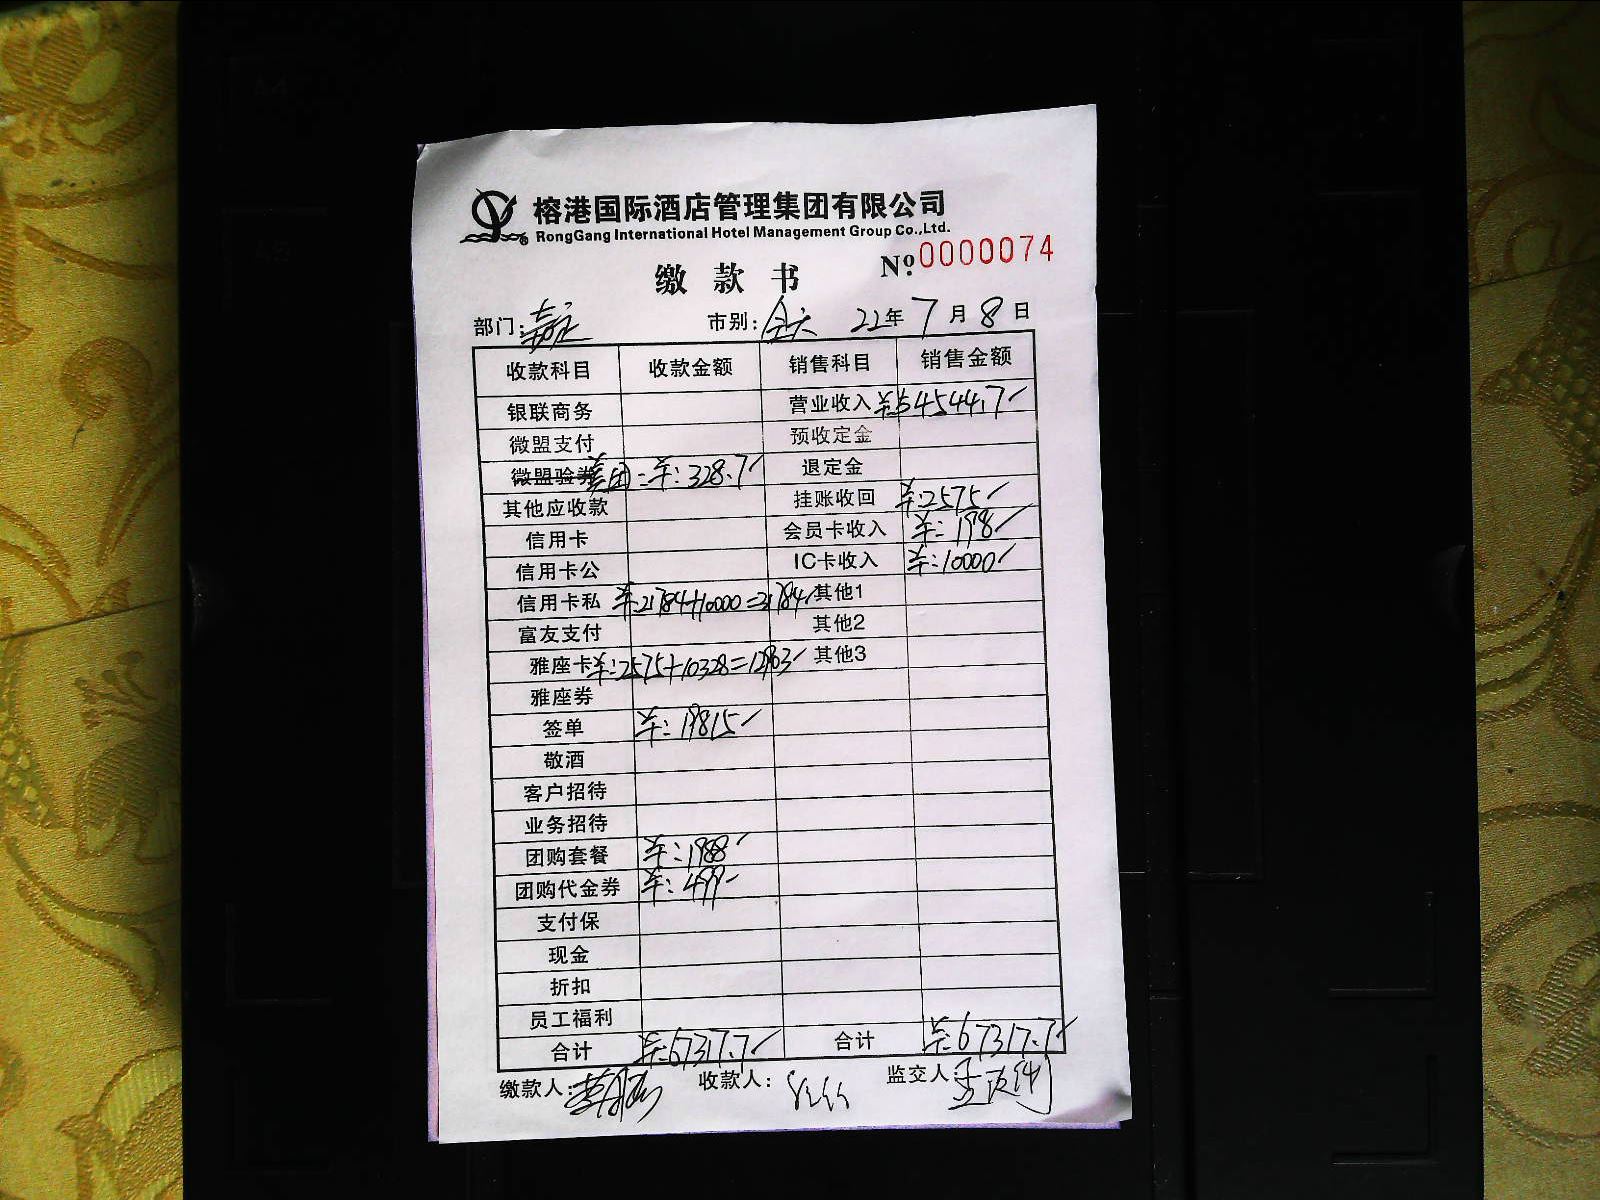 榕港国际酒店管理集团有限公司
RongGang International Hotel Management Group Co.,Ltd.
缴款书 №:0000074
部门: 市别:全天 22年7月8日
收款科目 收款金额 销售科目 销售金额
银联商务 营业收入 ¥:54544.7
微盟支付 预收定金
微盟验券 美团:¥:328.7 退定金
其他应收款 挂账收回 ¥:2575
信用卡 会员卡收入 ¥:198
信用卡公 IC卡收入 ¥:10000
信用卡私 ¥:21784+10000=31784 其他1
富友支付 其他2
雅座卡 ¥:2575+10328=12903 其他3
雅座券
签单 ¥:19815
敬酒
客户招待
业务招待
团购套餐 ¥:1988
团购代金券 ¥:499
支付保
现金
折扣
员工福利
合计 ¥:67317.7 合计 ¥:67317.7
缴款人: 收款人: 监交人: